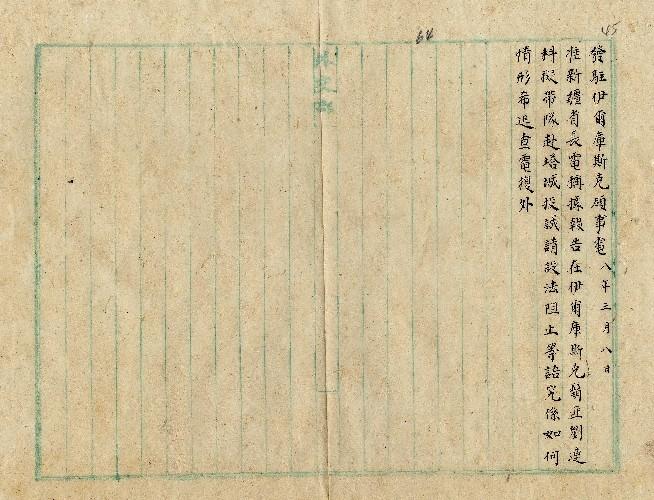 45
64
發駐伊爾庫斯克領事電 八年三月八日
准新疆省長電稱據報告在伊爾庫斯克
科擬帶隊赴塔城投誠請設法阻止等語究係如何
情形希迅查電復外
外交部